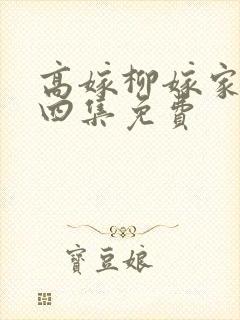 高嫁柳嫁家
四集免费
寶豆娘